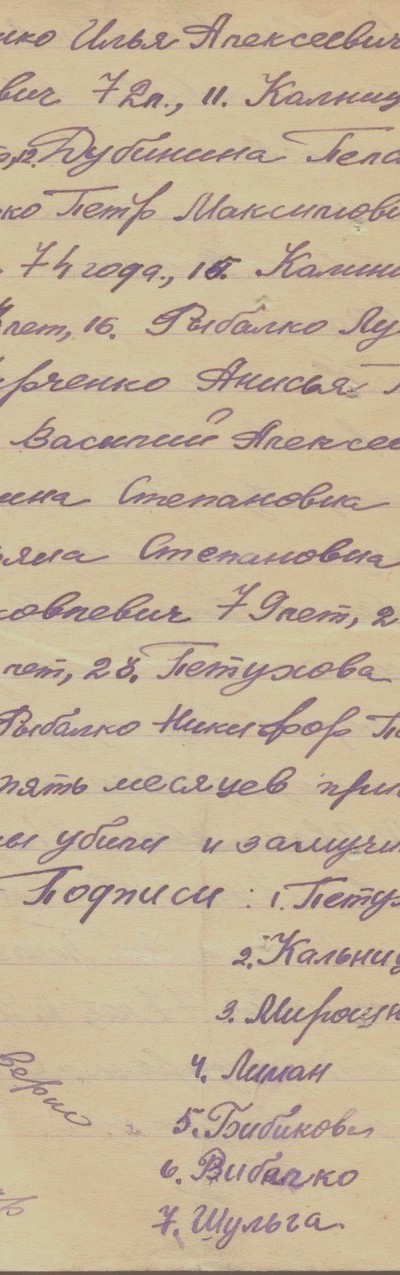 нко Илья Алексеевич
вич 72л., 11. Калниц
12. Дубинина Пела
ко Петр Максимови
74 года., 15. Калини
лет, 16. Рыбалко Лу
рченко Анисья
Василий Алексее
ина Степановна
яна Степановна
ковлевич 79лет, 2
лет, 28. Петухова
Рыбалко Никифор П
пять месяцев при
ы убили и замучи
Подписи: 1. Петух
2. Кальниц
3. Мирошн
4. Лиман
верно
5. Бибикова
6. Рибалко
7. Шульга